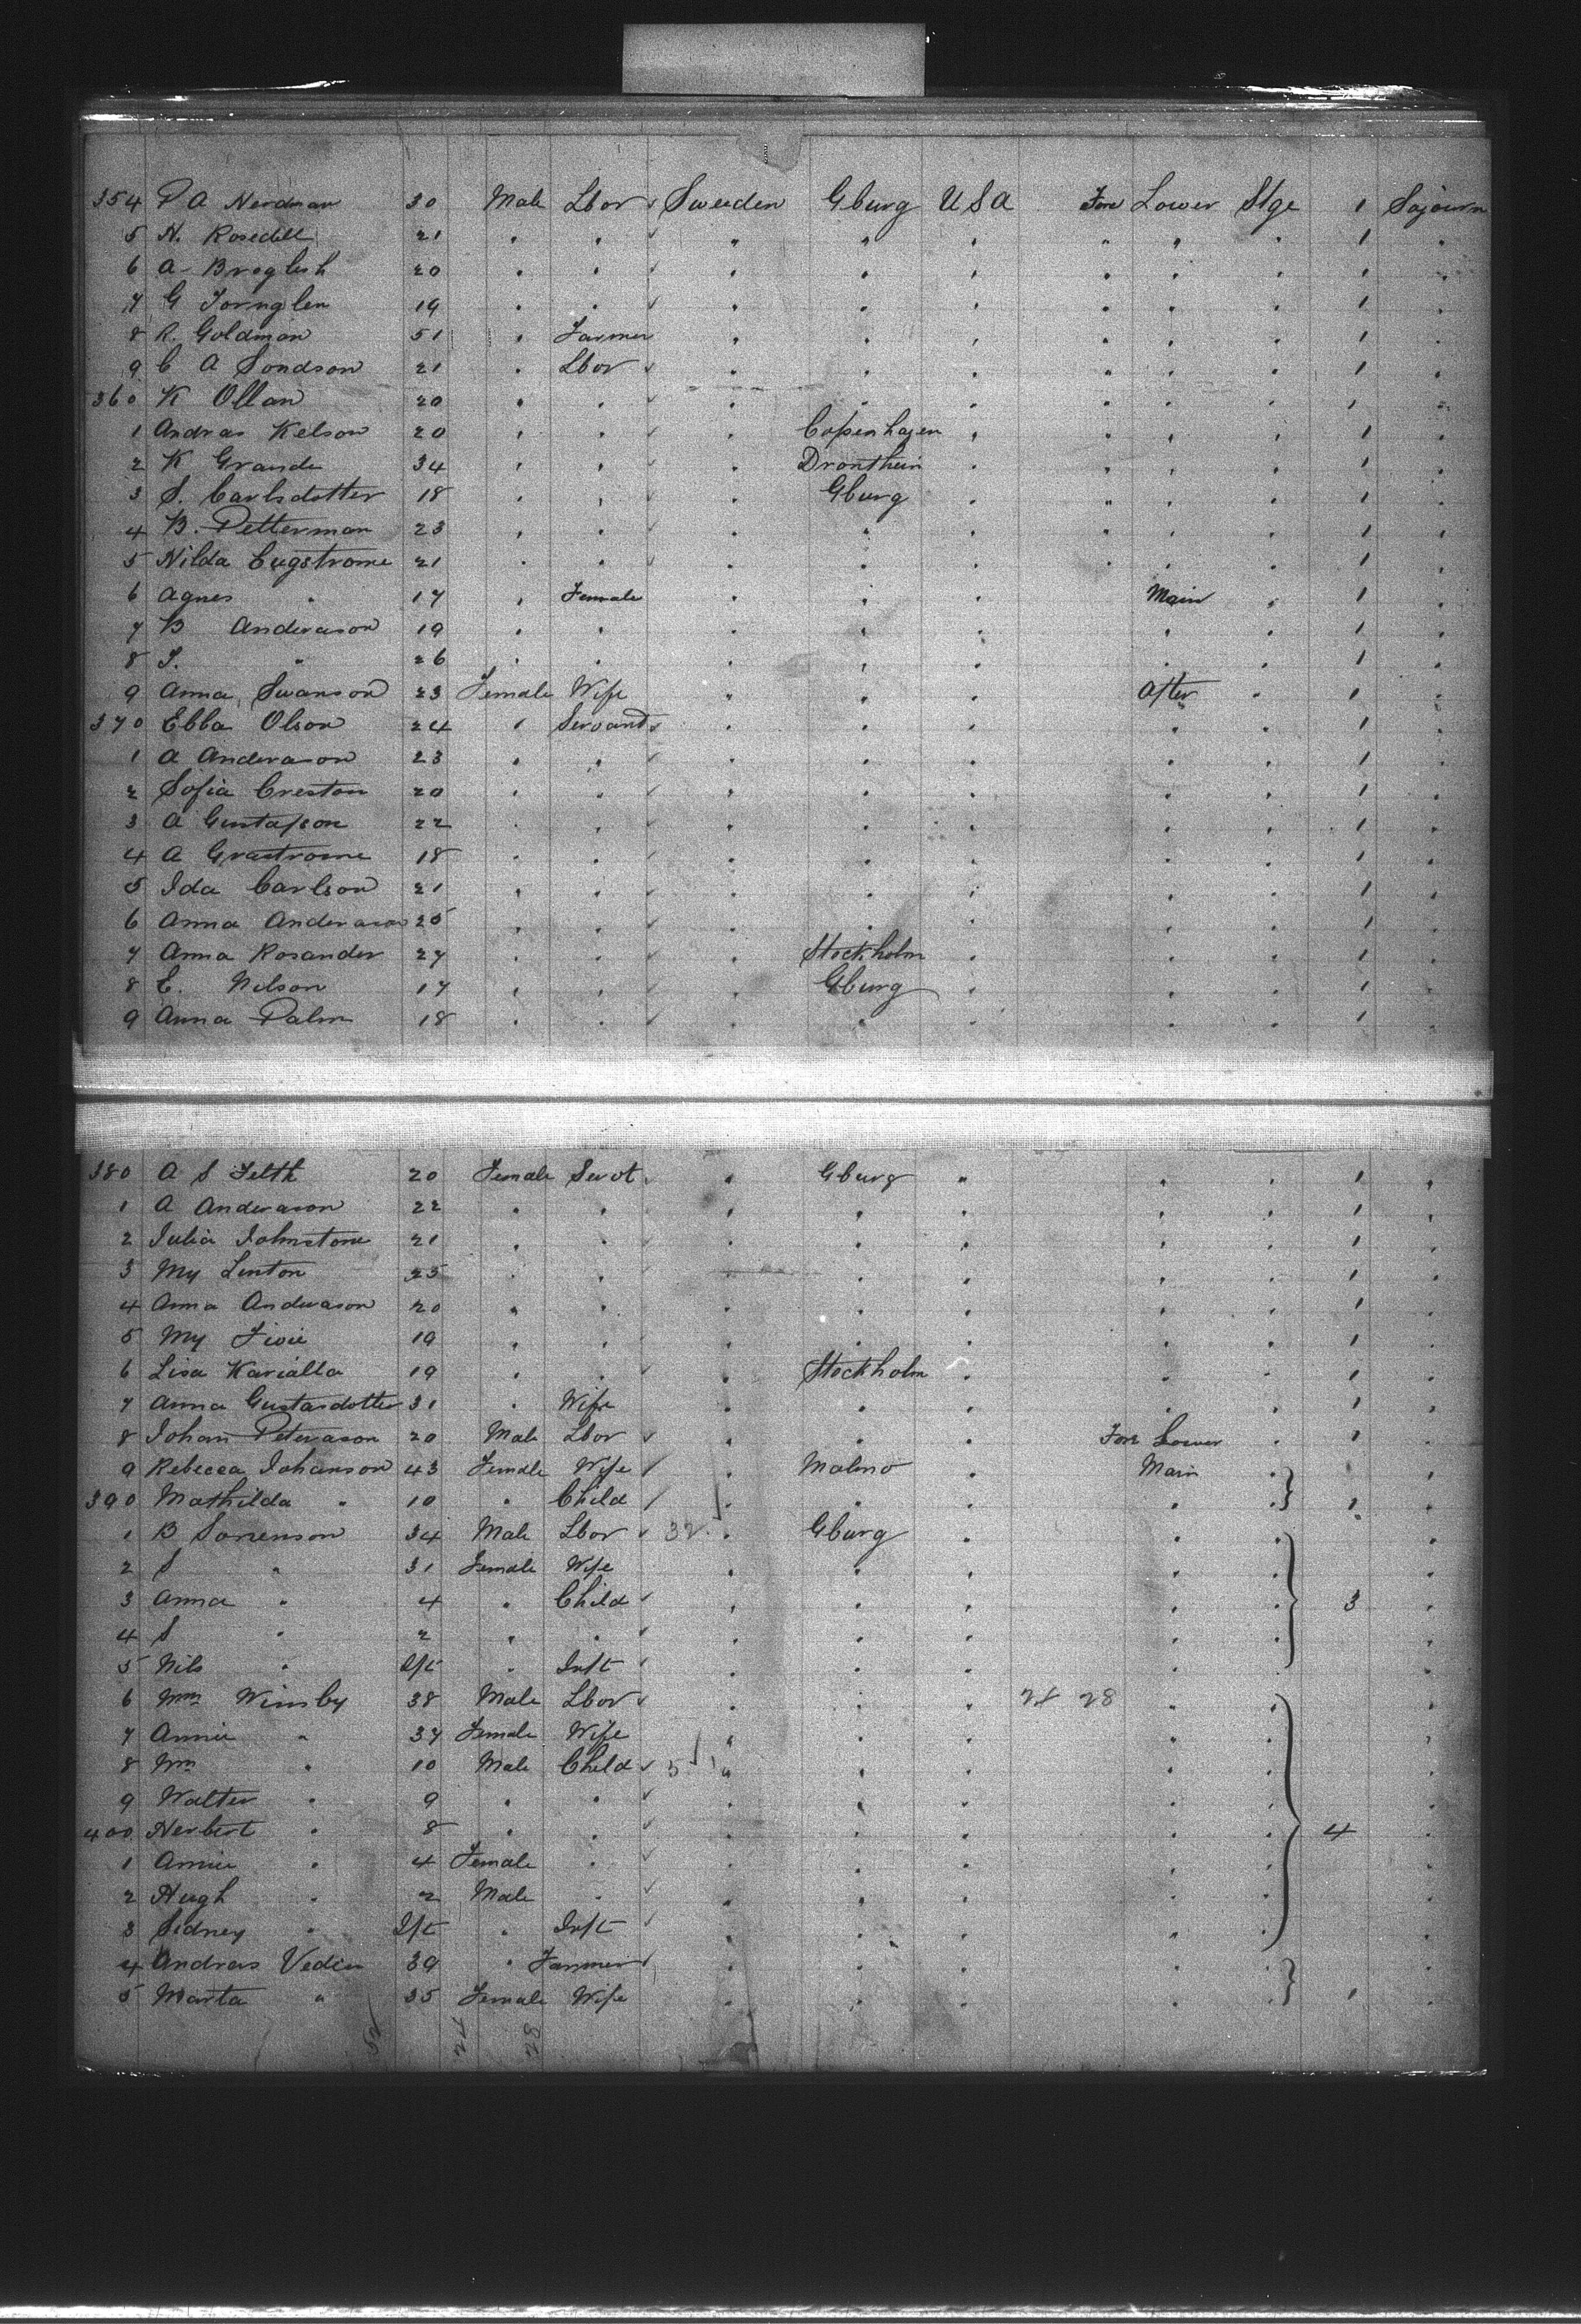 354 P A Nerdman 30 Male Lbor ✓ Sweeden Gburg U S A Fore Lower Stge 1 Sojourn
5 N. Rosedell 21 " " ✓ " " " " " " 1 "
6 A Broglish 20 " " ✓ " " " " " " 1 "
7 G Tornglen 19 " " ✓ " " " " " " 1 "
8 R. Goldman 51 " Farmer " " " " " " 1 "
9 C A Sondson 21 " Lbor ✓ " " " " " " 1 "
360 K Ollan 20 " " ✓ " " " " " " 1 "
1 Andras Kelson 20 " " ✓ " Copenhagen " " " " 1 "
2 K Grande 34 " " ✓ " Dronthein " " " " 1 "
3 S. Carlsdotter 18 " " ✓ " Gburg " " " " 1 "
4 B. Petterman 23 " " ✓ " " " " " " 1 "
5 Hilda Eugstrome 21 " " ✓ " " " " " " 1 "
6 Agnes " 17 " Female " " " Main " 1 "
7 B Anderason 19 " " " " " " " 1 "
8 J. " 26 " " " " " " " 1 "
9 Anna Swanson 23 Female Wife " " " After " 1 "
370 Ebba Olson 24 " Servant ✓ " " " " " 1 "
1 A Anderason 23 " " ✓ " " " " " 1 "
2 Sofia Creston 20 " " ✓ " " " " " 1 "
3 A Gustafson 22 " " ✓ " " " " " 1 "
4 A Grastrome 18 " " ✓ " " " " " 1 "
5 Ida Carlson 21 " " ✓ " " " " " 1 "
6 Anna Anderason 25 " " ✓ " " " " " 1 "
7 Anna Rosander 27 " " ✓ " Stockholm " " " 1 "
8 E. Nilson 17 " " ✓ " Gburg " " " 1 "
9 Anna Palm 18 " " ✓ " " " " " 1 "
380 A S Felth 20 Female Servt " Gburg " " " 1 "
1 A Anderason 22 " " " " " " " 1 "
2 Julia Johnstone 21 " " ✓ " " " " " 1 "
3 My Linton 25 " " ✓ " " " " " 1 "
4 Anna Anderason 20 " " " " " " " 1 "
5 My 19 " " ✓ " " " " " 1 "
6 Lisa Karialla 19 " " ✓ " Stockholm " " " 1 "
7 Anna Gustasdotter 31 " Wife " " " " " 1 "
8 Johan Peterason 20 Male Lbor ✓ " " " Fore Lower " 1 "
9 Rebecca Johanson 43 Female Wife / " Malmo " Main " "
390 Mathilda " 10 " Child / " " " " " 1 "
1 B Sorenson 34 Male Lbor ✓ 32 " Gburg " " " "
2 S " 31 Female Wife " " " " " "
3 Anna " 4 " Child ✓ " " " " " 3 "
4 S " 2 " " ✓ " " " " " "
5 Nils " Ift " Inft ✓ " " " " " "
6 Wm Winsby 38 Male Lbor ✓ " " " 28 " " "
7 Annie " 37 Female Wife " " " " " "
8 Wm " 10 Male Child ✓ 5 " " " " " "
9 Walter " 9 " " ✓ " " " " " "
400 Herbert " 8 " " ✓ " " " " " 4 "
1 Annie " 4 Female " ✓ " " " " " "
2 Hugh " 2 Male " ✓ " " " " " "
3 Sidney " Ift " Inft ✓ " " " " " "
4 Andras Vedin 39 " Farmer ✓ " " " " " "
5 Marta " 35 Female Wife " " " " " 1 "